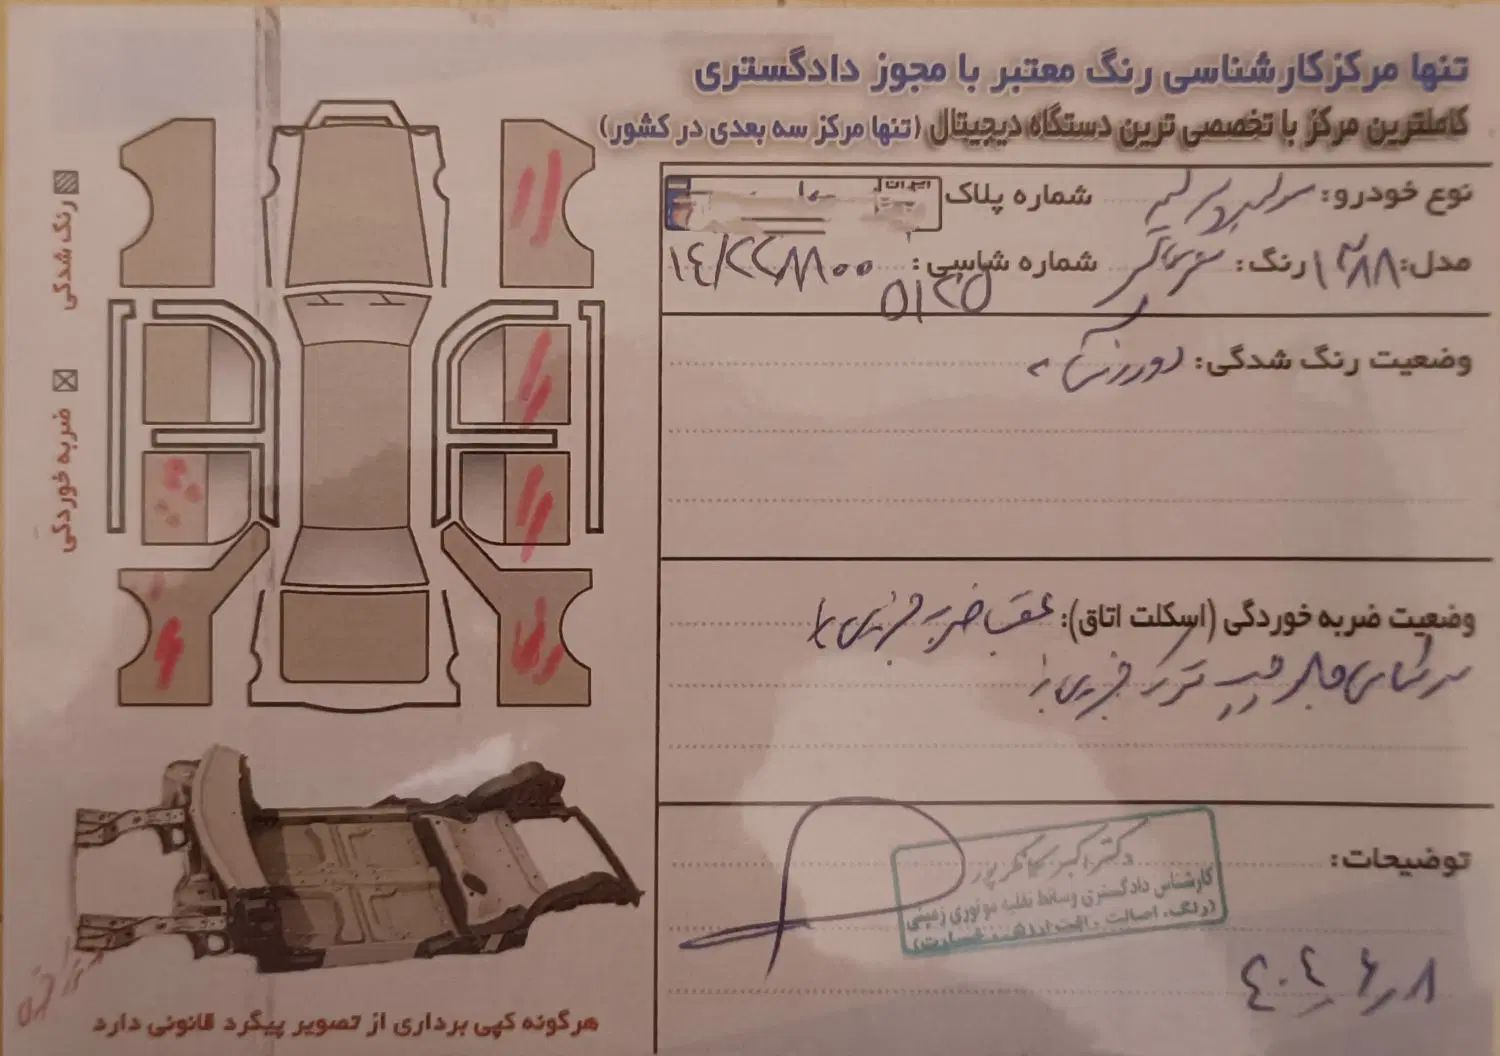 تنها مرکز کارشناسی رنگ معتبر با مجوز دادگستری
کاملترین مرکز با تخصصی ترین دستگاه دیجیتال (تنها مرکز سه بعدی در کشور)
نوع خودرو: شماره پلاک ایران
مدل: ۱۳۸۸ رنگ: شماره شاسی: ۱۴/۲۲۸۸۰۰
وضعیت رنگ شدگی: دور رنگ
وضعیت ضربه خوردگی (اسکلت اتاق): عقب ضربه جزیی
سرشاسی جلو چپ ترک جزیی
توضیحات:
دکتر اکبر
کارشناس دادگستری وسائط نقلیه موتوری زمینی
(رنگ، اصالت، افت ارزش، خسارت)
۴۰۴/۶/۸
رنگ شدگی
ضربه خوردگی
هرگونه کپی برداری از تصویر پیگرد قانونی دارد